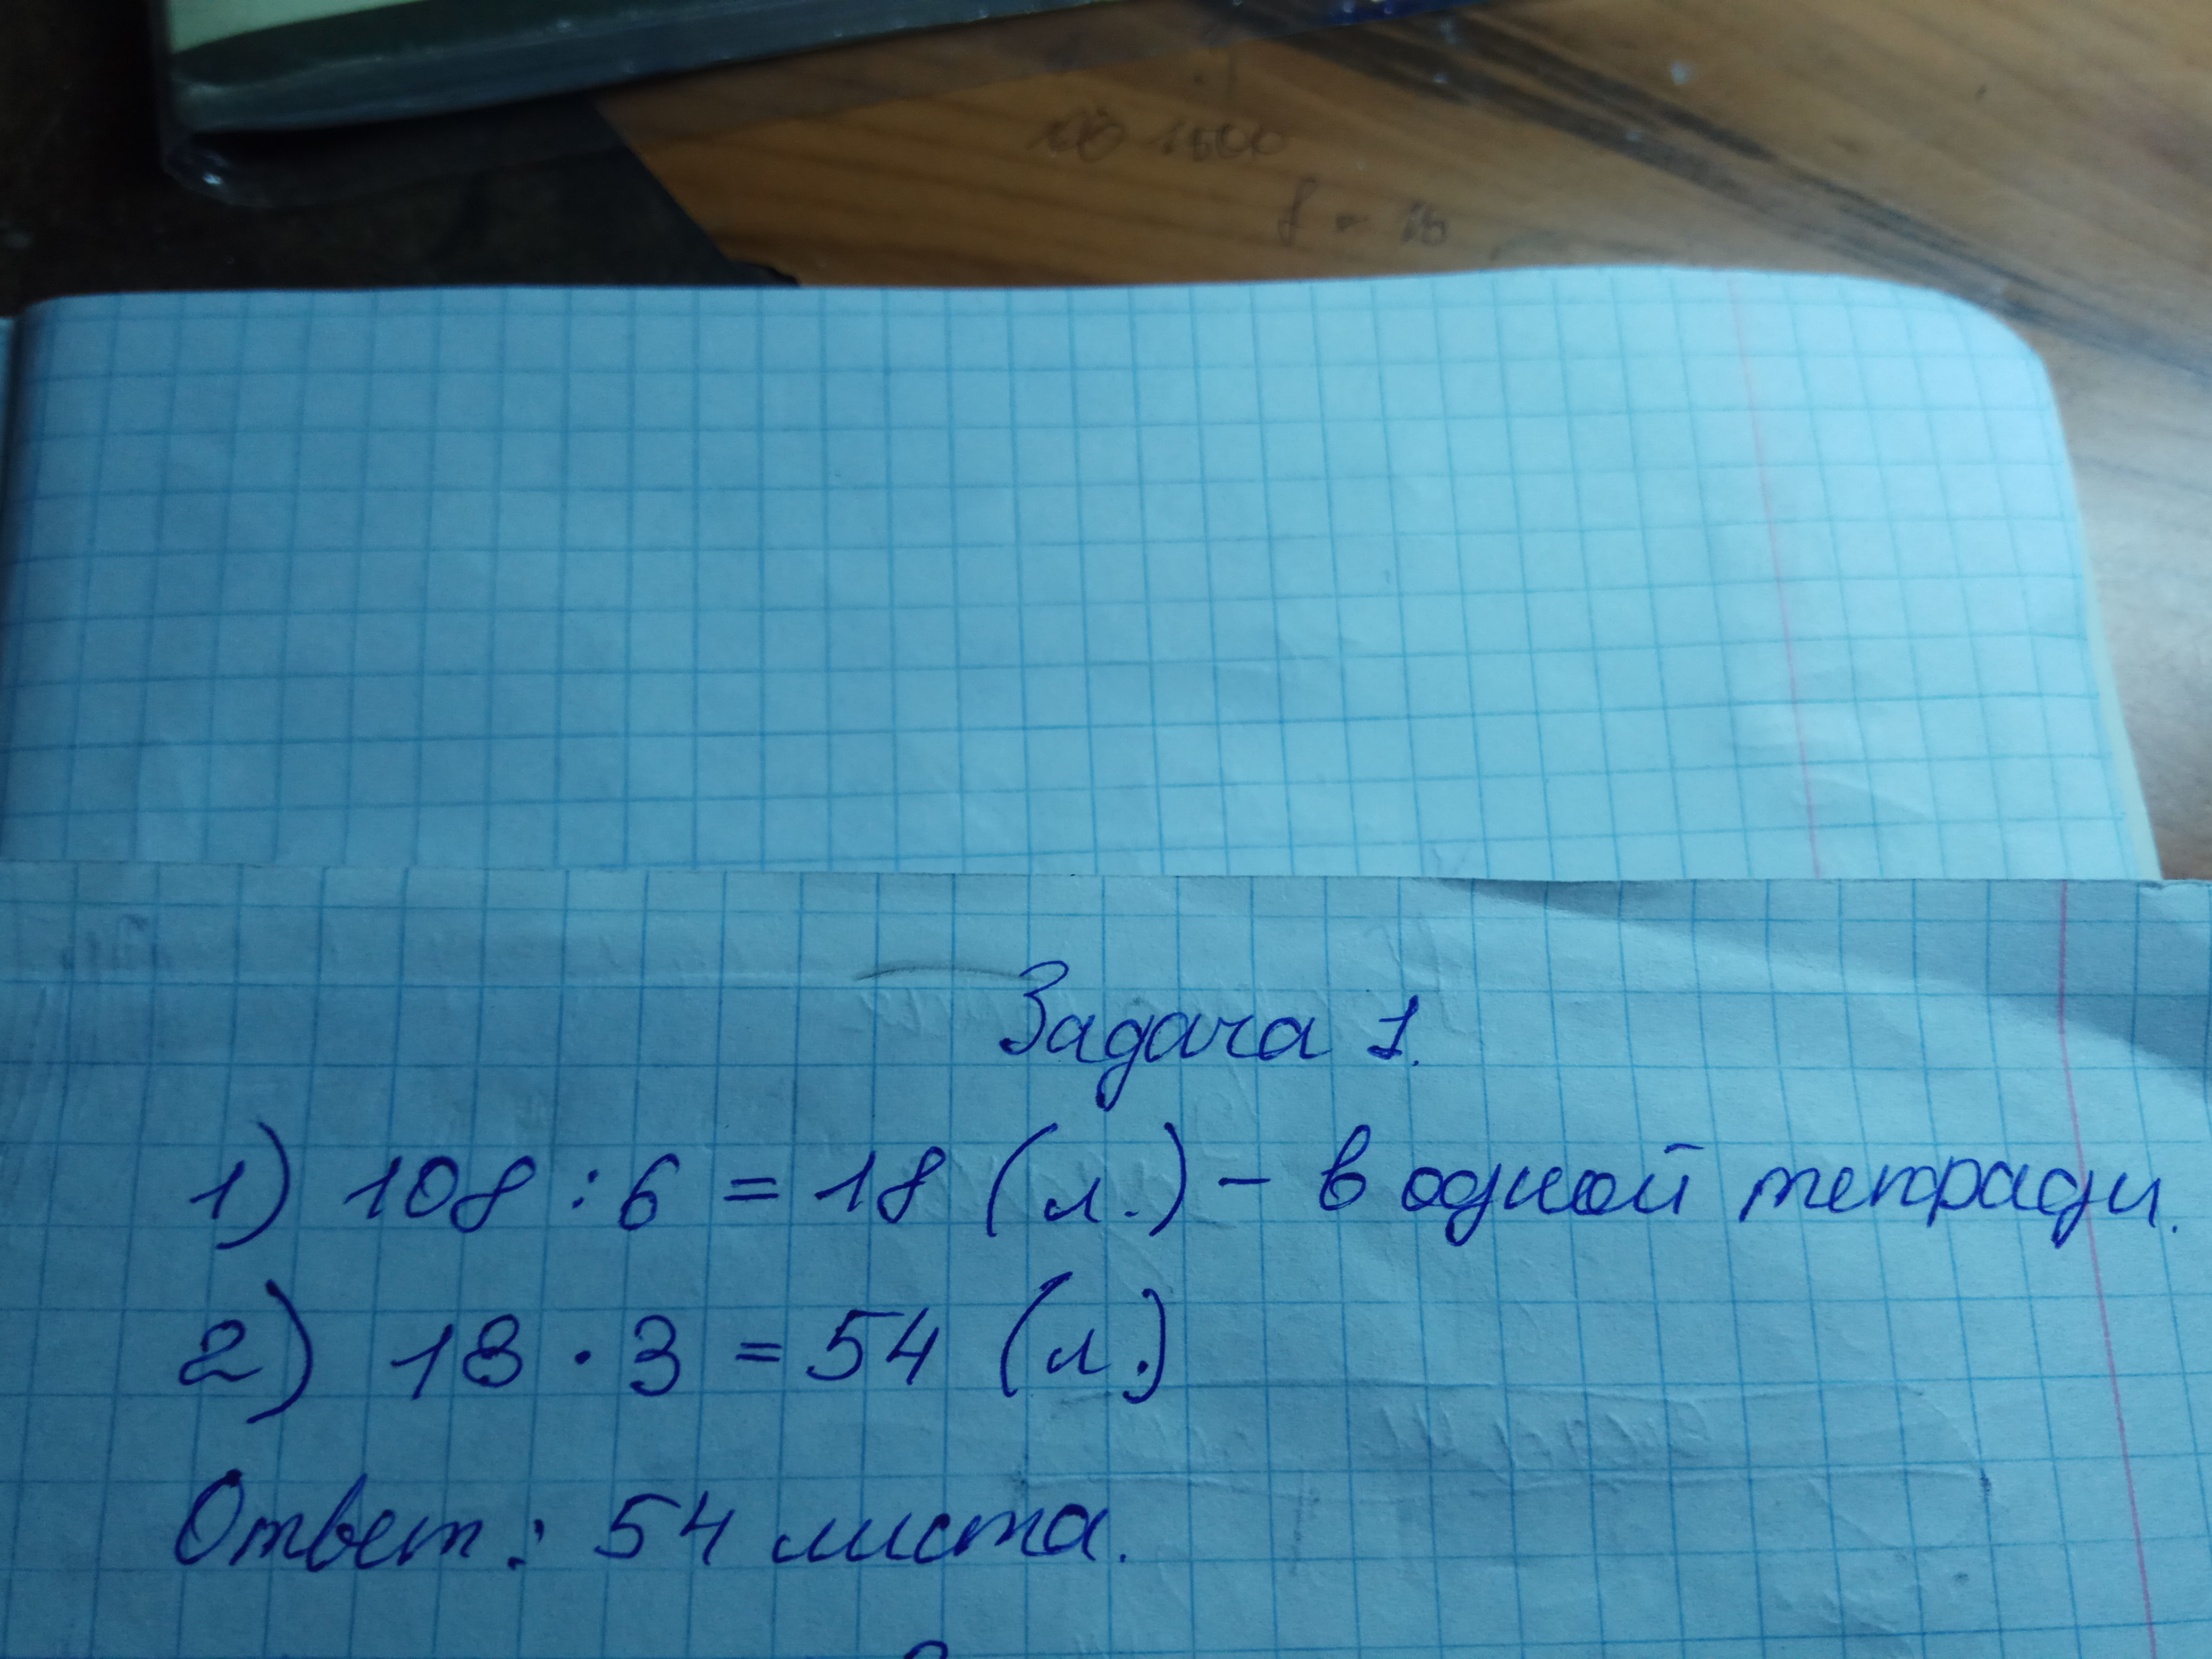 Задача 1.
1) 108 : 6 = 18 (л.) - в одной тетради.
2) 18 · 3 = 54 (л.)
Ответ: 54 листа.